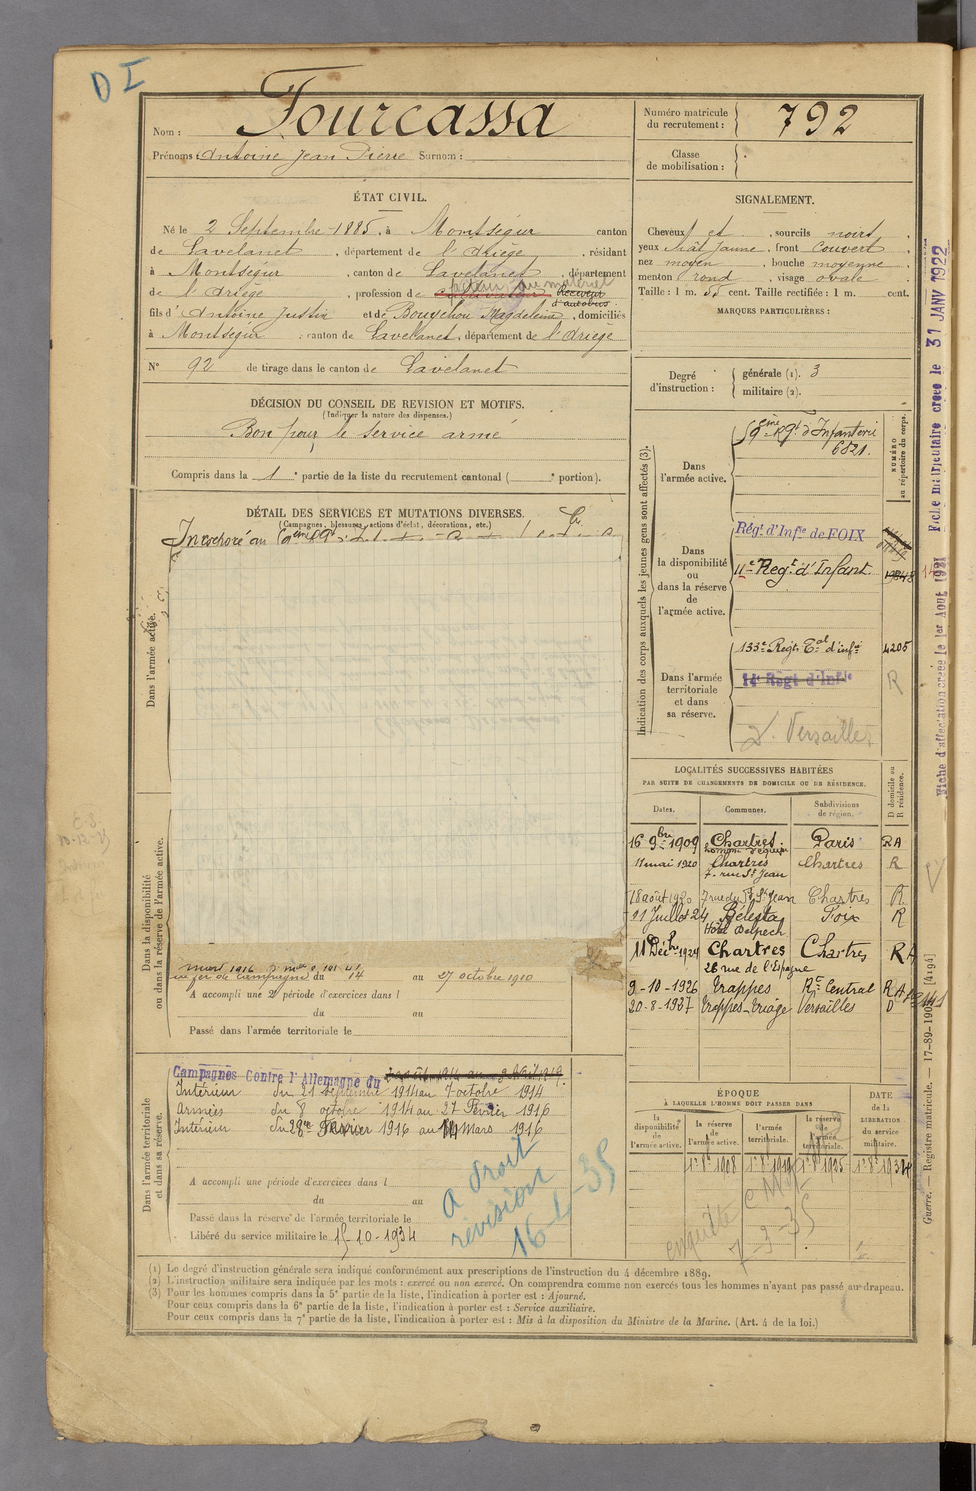 D I
Nom : Fourcassa
Prénoms : Antoine Jean Pierre Surnom :
Numéro matricule du recrutement : 792
Classe de mobilisation :
ÉTAT CIVIL.
Né le 2 Septembre 1885, à Montségur canton
de Lavelanet, département de l'Ariège, résidant
à Montségur, canton de Lavelanet, département
de l'Ariège, profession de
Receveur d'autobus
fils d'Antoine Justin et de Bouychou Magdeleine, domiciliés
à Montségur canton de Lavelanet, département de l'Ariège
N° 92 de tirage dans le canton de Lavelanet
SIGNALEMENT.
Cheveux et , sourcils noirs,
yeux chât jaune, front couvert
nez moyen, bouche moyenne
menton rond, visage ovale
Taille : 1 m. 55 cent. Taille rectifiée : 1 m. cent.
MARQUES PARTICULIÈRES :
Degré d'instruction : générale (1). 3
militaire (2).
DÉCISION DU CONSEIL DE REVISION ET MOTIFS.
(Indiquer la nature des dispenses.)
Bon pour le service armé
Compris dans la 1e partie de la liste du recrutement cantonal ( e portion).
DÉTAIL DES SERVICES ET MUTATIONS DIVERSES.
(Campagnes, blessures, actions d'éclat, décorations, etc.)
Incorporé au
Dans l'armée active.
Dans la disponibilité ou dans la réserve de l'armée active.
du 14 au 27 octobre 1910
A accompli une 2e période d'exercices dans l
du au
Passé dans l'armée territoriale le
Dans l'armée territoriale et dans sa réserve.
Campagnes Contre l'Allemagne du
Intérieur du 21 septembre 1914 au 7 octobre 1914
Armées du 8 octobre 1914 au 27 Février 1916
Intérieur du 28 Février 1916 au 14 Mars 1916
A accompli une période d'exercices dans l
du au
Passé dans la réserve de l'armée territoriale le
Libéré du service militaire le 15-10-1934
a droit
révision
16-1-35
Indication des corps auxquels les jeunes gens sont affectés (3).
NUMÉRO au répertoire du corps.
Dans l'armée active.
59ème Rgt d'Infanterie
6821.
Dans la disponibilité ou dans la réserve de l'armée active.
Régt d'Infie de FOIX
11e Regt d'Infant.
Dans l'armée territoriale et dans sa réserve.
133e Regt Tal d'infie 4205
14e Regt d'Infie R
Versailles
LOCALITÉS SUCCESSIVES HABITÉES
PAR SUITE DE CHANGEMENTS DE DOMICILE OU DE RÉSIDENCE.
Dates. Communes. Subdivisions de région. D domicile ou R résidence.
16 9bre 1909 Chartres Paris RA
11 mai 1920 Chartres Chartres R
7. rue St Jean
18 août 1920 7 rue du Fg St Jean Chartres R
11 Juillet 24 Bélesta Foix R
Hôtel Delpech
11 Décbre 1924 Chartres Chartres RA
26 rue de l'Epargne
9-10-1926 Trappes Rt Central RA
20-8-1927 Trappes-Triage Versailles D
ÉPOQUE
À LAQUELLE L'HOMME DOIT PASSER DANS
la disponibilité de l'armée active. la réserve de l'armée active. l'armée territoriale. la réserve de l'armée territoriale.
DATE de la LIBÉRATION du service militaire.
enquête
7-3-35
(1) Le degré d'instruction générale sera indiqué conformément aux prescriptions de l'instruction du 4 décembre 1889.
(2) L'instruction militaire sera indiquée par les mots : exercé ou non exercé. On comprendra comme non exercés tous les hommes n'ayant pas passé au drapeau.
(3) Pour les hommes compris dans la 5e partie de la liste, l'indication à porter est : Ajourné.
Pour ceux compris dans la 6e partie de la liste, l'indication à porter est : Service auxiliaire.
Pour ceux compris dans la 7e partie de la liste, l'indication à porter est : Mis à la disposition du Ministre de la Marine. (Art. 4 de la loi.)
Fiche d'affectation créée le 1er Aout 1921
Fiche matriculaire créée le 31 JANV 1922
Guerre. — Registre matricule. — 17-89-1905 [4194]